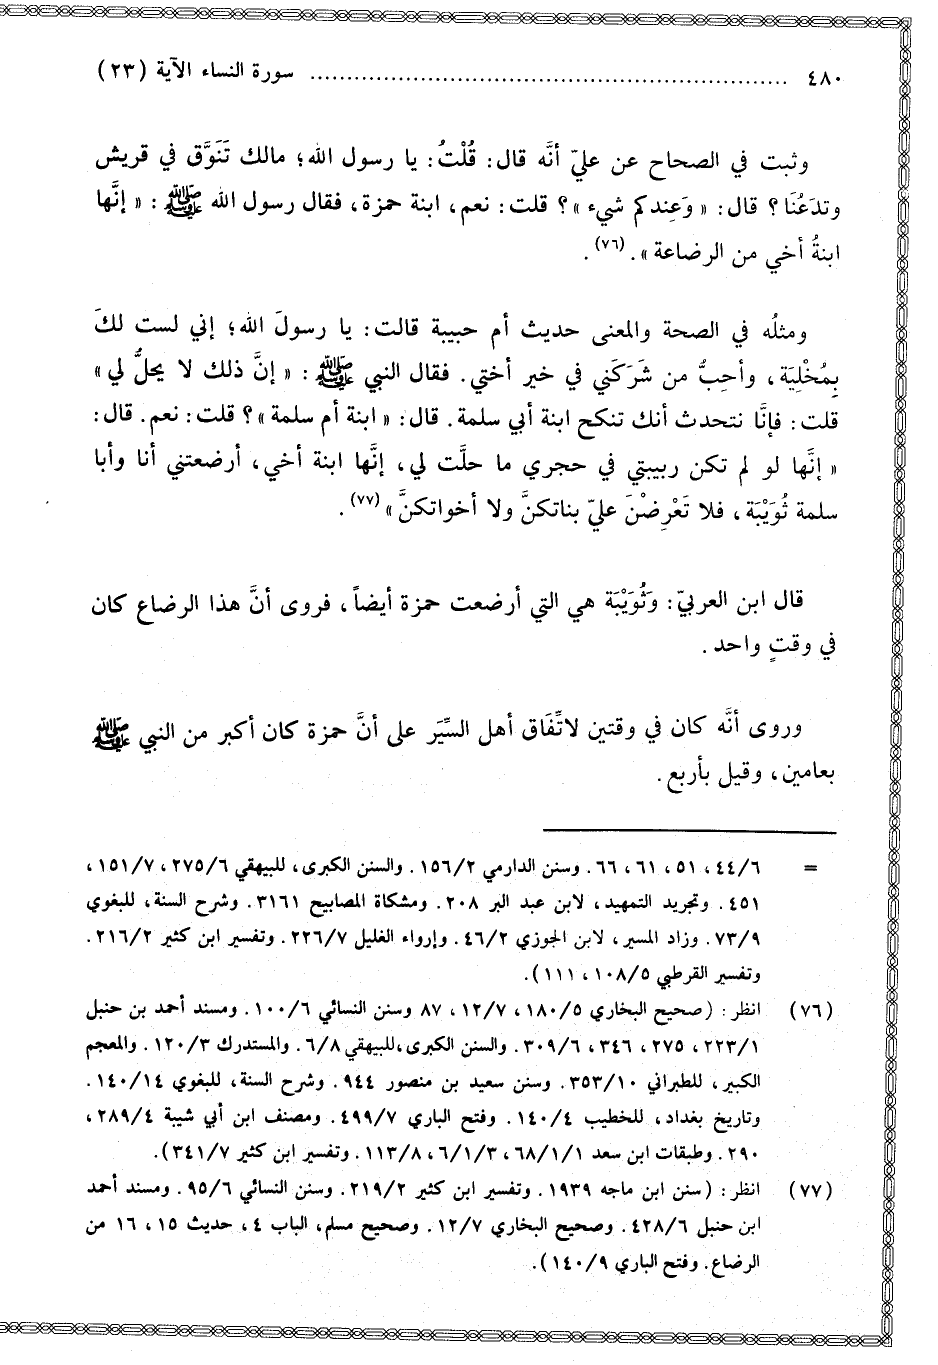 ٤٨٠ ................................................................ سورة النساء الآية (٢٣)
وثبت في الصحاح عن عليّ أنَّه قال: قُلْتُ: يا رسول الله؛ مالك تَنَوَّق في قريش
وتدَعُنَا؟ قال: «وَعِندكم شيء»؟ قلت: نعم، ابنة حمزة، فقال رسول الله ﷺ: «إنَّها
ابنةُ أخي من الرضاعة». (٧٦).
ومثلُه في الصحة والمعنى حديث أم حبيبة قالت: يا رسولَ الله؛ إني لست لكَ
بِمُخْلِيَة، وأحِبُّ من شَرَكَني في خير أختي. فقال النبي ﷺ: «إنَّ ذلك لا يحلُّ لي»
قلت: فإنَّا نتحدث أنك تنكح ابنة أبي سلمة. قال: «ابنة أم سلمة»؟ قلت: نعم. قال:
«إنَّها لو لم تكن ربيبتي في حجري ما حلَّت لي، إنَّها ابنة أخي، أرضعتني أنا وأبا
سلمة ثُوَيْبَة، فلا تَعْرِضْنَ عليّ بناتكنَّ ولا أخواتكنَّ» (٧٧).
قال ابن العربيّ: وَثُوَيْبَة هي التي أرضعت حمزة أيضاً، فروى أنَّ هذا الرضاع كان
في وقتٍ واحد.
وروى أنَّه كان في وقتين لاتِّفَاق أهل السِّيَر على أنَّ حمزة كان أكبر من النبي ﷺ
بعامين، وقيل بأربع.
= ٤٤/٦، ٥١، ٦١، ٦٦. وسنن الدارمي ١٥٦/٢. والسنن الكبرى، للبيهقي ٢٧٥/٦، ١٥١/٧،
٤٥١. وتجريد التمهيد، لابن عبد البر ٢٠٨. ومشكاة المصابيح ٣١٦١. وشرح السنة، للبغوي
٧٣/٩. وزاد المسير، لابن الجوزي ٤٦/٢. وإرواء الغليل ٢٢٦/٧. وتفسير ابن كثير ٢١٦/٢.
وتفسير القرطبي ١٠٨/٥، ١١١).
(٧٦) انظر: (صحيح البخاري ١٨٠/٥، ١٢/٧، ٨٧ وسنن النسائي ١٠٠/٦. ومسند أحمد بن حنبل
٢٢٣/١، ٢٧٥، ٣٤٦، ٣٠٩/٦. والسنن الكبرى،للبيهقي ٦/٨. والمستدرك ١٢٠/٣. والمعجم
الكبير، للطبراني ٣٥٣/١٠. وسنن سعيد بن منصور ٩٤٤. وشرح السنة، للبغوي ١٤٠/١٤.
وتاريخ بغداد، للخطيب ١٤٠/٤. وفتح الباري ٤٩٩/٧. ومصنف ابن أبي شيبة ٢٨٩/٤،
٢٩٠. وطبقات ابن سعد ٦٨/١/١، ٦/١/٣، ١١٣/٨. وتفسير ابن كثير ٣٤١/٧).
(٧٧) انظر: (سنن ابن ماجه ١٩٣٩. وتفسير ابن كثير ٢١٩/٢. وسنن النسائي ٩٥/٦. ومسند أحمد
ابن حنبل ٤٢٨/٦. وصحيح البخاري ١٢/٧. وصحيح مسلم، الباب ٤، حديث ١٥، ١٦ من
الرضاع. وفتح الباري ١٤٠/٩).